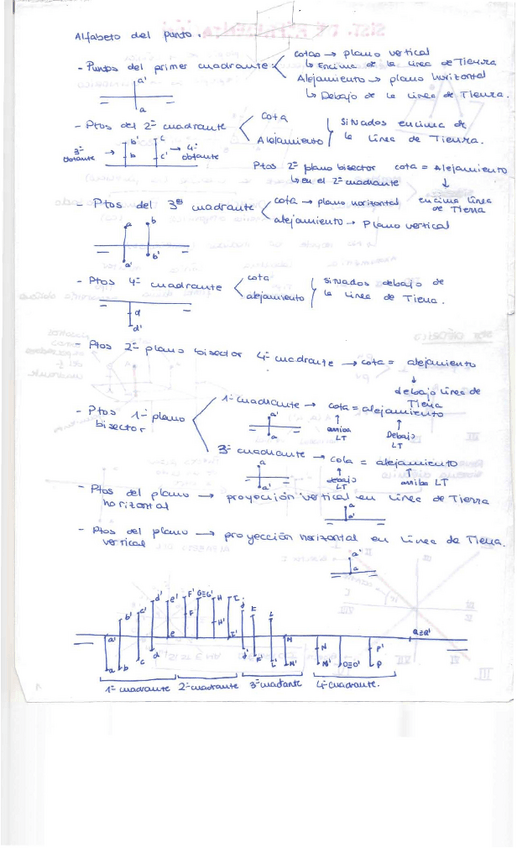 Alfabeto del punto.
- Puntos del primer cuadrante
cotas → plano vertical
↳ Encima de la línea de Tierra
Alejamiento → plano horizontal
↳ Debajo de la Línea de Tierra.
a'
a
- Ptos del 2º cuadrante
cota
Alejamiento
Situados encima de
la línea de Tierra.
3er
Octante → b' b
c c' → 4º
octante
Ptos 2º plano bisector cota = Alejamiento
↳ en el 2º cuadrante
encima línea
de Tierra
- Ptos del 3er cuadrante
cota → plano horizontal
alejamiento → Plano vertical
a b
a' b'
- Ptos 4º cuadrante
cota
alejamiento
situados debajo de
la línea de Tierra.
d
d'
- Ptos 2º plano bisector 4º cuadrante → cota = alejamiento
debajo línea de
Tierra
- Ptos 1º plano
bisector
1º cuadrante → cota = alejamiento
a'
a
↑
arriba
LT
↑
Debajo
LT
3º cuadrante → cota = alejamiento
a
a'
↑
debajo
LT
↑
arriba LT
- Ptos del plano → proyección vertical en Línea de Tierra
horizontal
a
a'
- Ptos del plano → proyección horizontal en Línea de Tierra.
vertical
a'
a
a' b' c' d' e' F' G≡G' H I
a b c d e F H' I'
J K L M N P' Q≡Q'
J' K' L' M' N' O≡O' P
1º cuadrante 2º cuadrante 3º cuadrante 4º cuadrante.